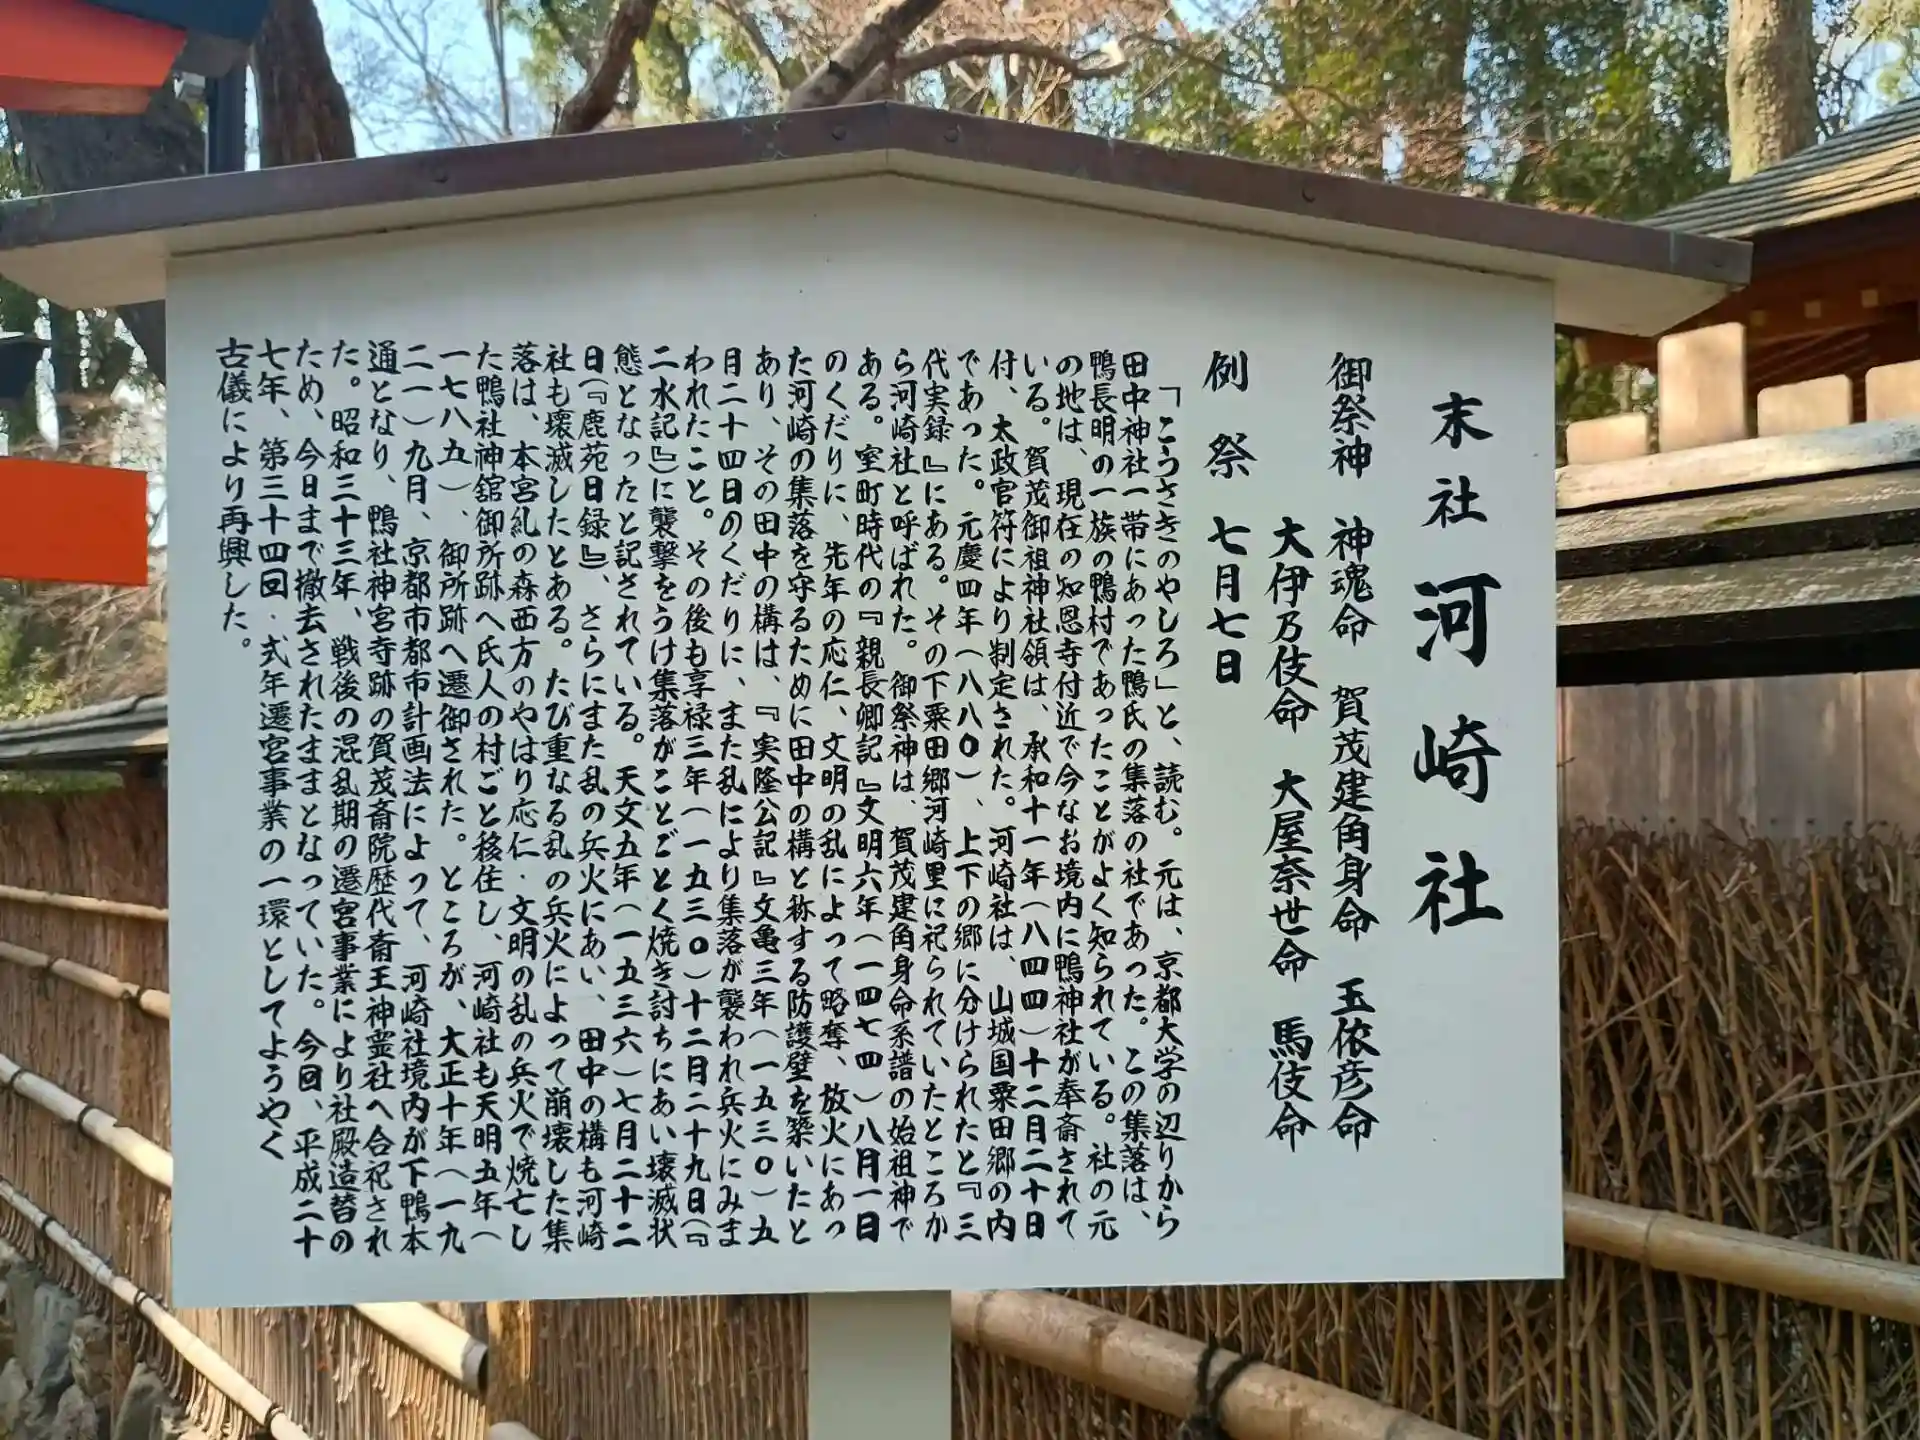 末社 河崎社
御祭神 神魂命 賀茂建角身命 玉依彦命
大伊乃伎命 大屋奈世命 馬伎命
例祭 七月七日
「こうさきのやしろ」と、読む。元は、京都大学の辺りから
田中神社一帯にあった鴨氏の集落の社であった。この集落は、
鴨長明の一族の鴨村であったことがよく知られている。社の元
の地は、現在の知恩寺付近で今なお境内に鴨神社が奉斎されて
いる。賀茂御祖神社領は、承和十一年(八四四)十二月二十日
付、太政官符により制定された。河崎社は、山城国粟田郷の内
であった。元慶四年(八八〇)、上下の郷に分けられたと『三
代実録』にある。その下粟田郷河崎里に祀られていたところか
ら河崎社と呼ばれた。御祭神は、賀茂建角身命系譜の始祖神で
ある。室町時代の『親長卿記』文明六年(一四七四)八月一日
のくだりに、先年の応仁、文明の乱によって略奪、放火にあっ
た河崎の集落を守るために田中の構と称する防護壁を築いたと
あり、その田中の構は、『実隆公記』文亀三年(一五三〇)五
月二十四日のくだりに、また乱により集落が襲われ兵火にみま
われたこと。その後も享禄三年(一五三〇)十二月二十九日(『
二水記』)に襲撃をうけ集落がことごとく焼き討ちにあい壊滅状
態となったと記されている。天文五年(一五三六)七月二十二
日(『鹿苑日録』)、さらにまた乱の兵火にあい、田中の構も河崎
社も壊滅したとある。たび重なる乱の兵火によって崩壊した集
落は、本宮糺の森西方のやはり応仁・文明の乱の兵火で焼亡し
た鴨社神舘御所跡へ氏人の村ごと移住し、河崎社も天明五年(
一七八五)、御所跡へ遷御された。ところが、大正十年(一九
二一)九月、京都市都市計画法によって、河崎社境内が下鴨本
通となり、鴨社神宮寺跡の賀茂斎院歴代斎王神霊社へ合祀され
た。昭和三十三年、戦後の混乱期の遷宮事業により社殿造替の
ため、今日まで撤去されたままとなっていた。今回、平成二十
七年、第三十四回・式年遷宮事業の一環としてようやく
古儀により再興した。